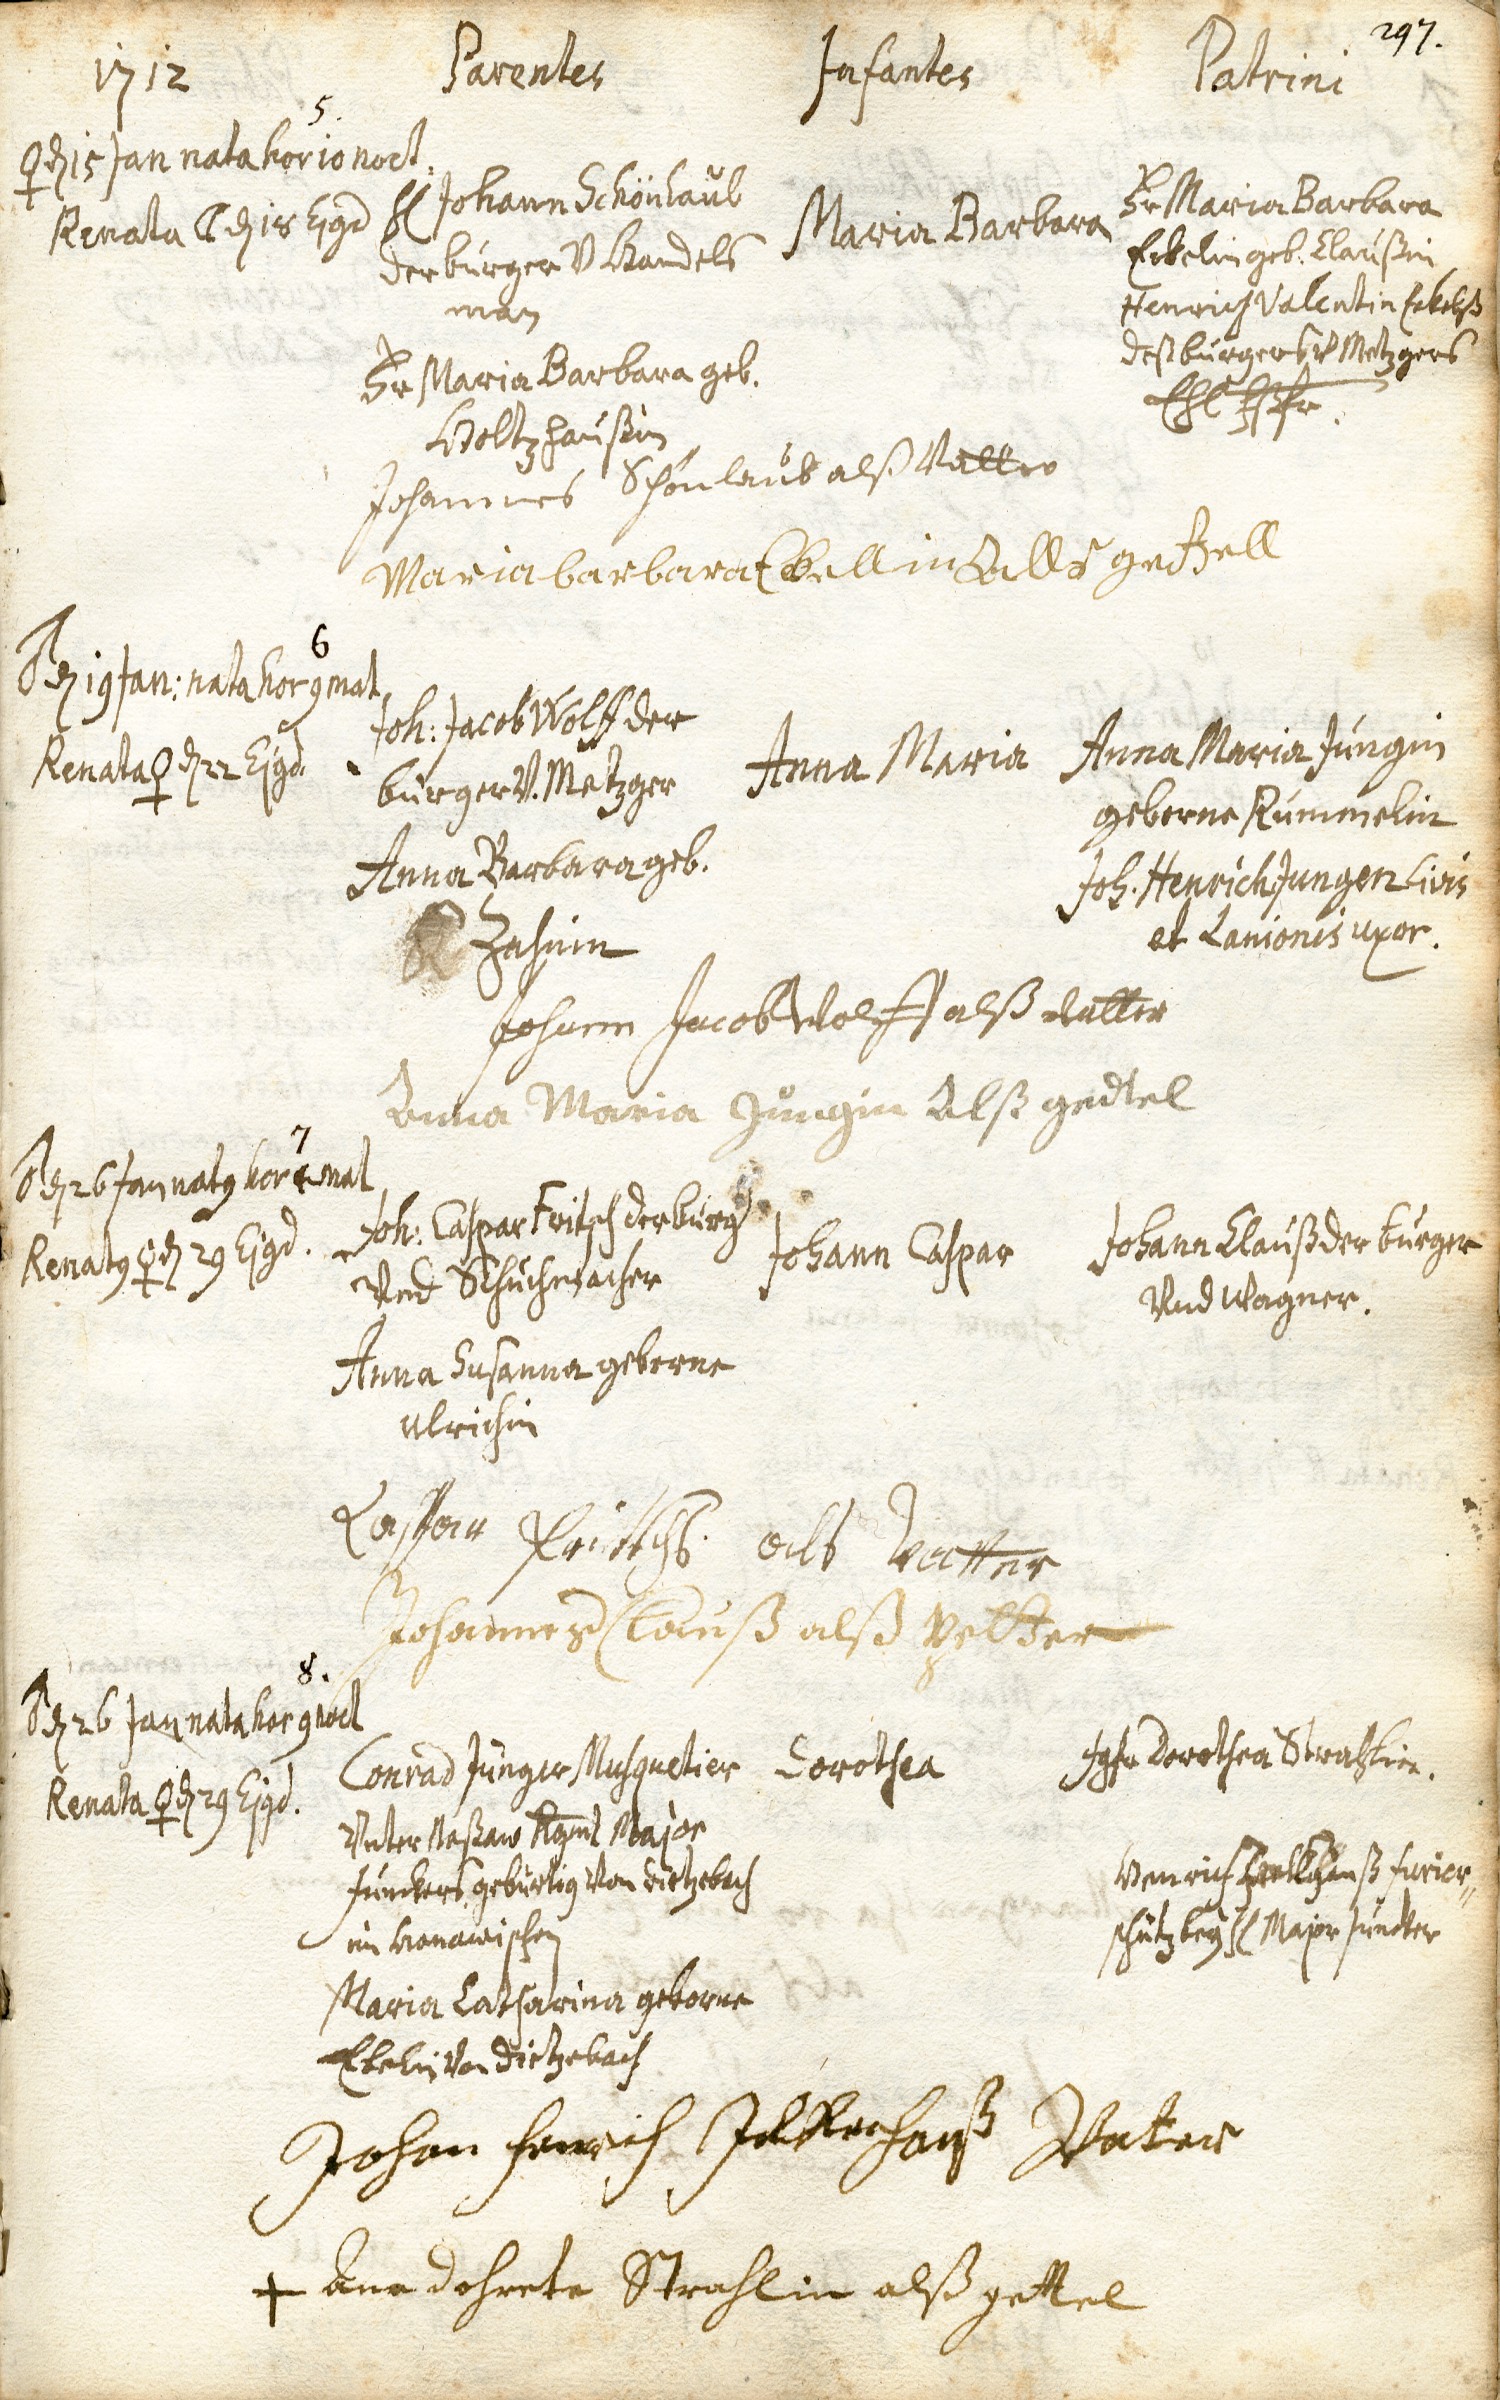 297.
1712 Parentes Infantes Patrini
5.
♀ d 15 Jan nata hor 10 noct.
Renata ☾ d 18 Ejgd
H Johann Schönlaub
der burger V Handels
man
Fr Maria Barbara geb.
Holtzhaußin
Maria Barbara
Fr Maria Barbara
Eckelin geb. Claußin
Henrich Valentin Eckelß
deß burgers v Metzgers
Ehl Haßfr.
Johannes Schönlaub alß Vatter
Maria barbara Eckellin Alls gettell
6
♂ d 19 Jan: nata hor 9 mat
Renata ♀ d 22 Ejgd.
Joh: Jacob Wolff der
burger V. Metzger
Anna Barbara geb.
Zahnin
Anna Maria
Anna Maria Jungin
geberne Rummelin
Joh. Henrich Jungen Civis
et Lanionis uxor.
Johann Jacob Wolff alß vatter
Anna Maria Jungin Alß gedtel
7
♂ d 26 Jan natq hor mat
Renatq ♀ d 29 Ejgd.
Joh: Caspar Fritsch der burg
Vnd Schuchmacher
Anna Susanna geberne
Ulrichin
Johann Caspar
Johann Clauß der burger
Vnd Wagner.
Caspar Fritsch als Vatter
Johannes Clauß alß petter
8.
♂ d 26 Jan nata hor 9 noct
Renata ♀ d 29 Ejgd.
Conrad Junger Musquetier
Vnter Naßaw Rgmt Major
Junckers, gebürtig Von dietzebach
im Hanawischen
Maria Catharina geborne
Ebelin Von Dietzebach
Dorothea
Jgfr Dorothea Strahlin.
Henrich furier
schütz bey H Major Juncker
Johan Henrich Vater
+ Ana dohrete Strahlin alß gettel